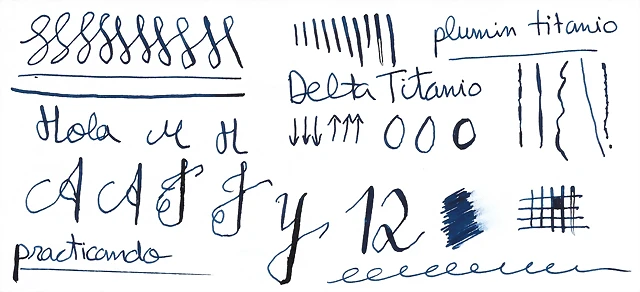 plumin titanio
Delta Titanio
Hola M H
A A F F
y 12
practicando